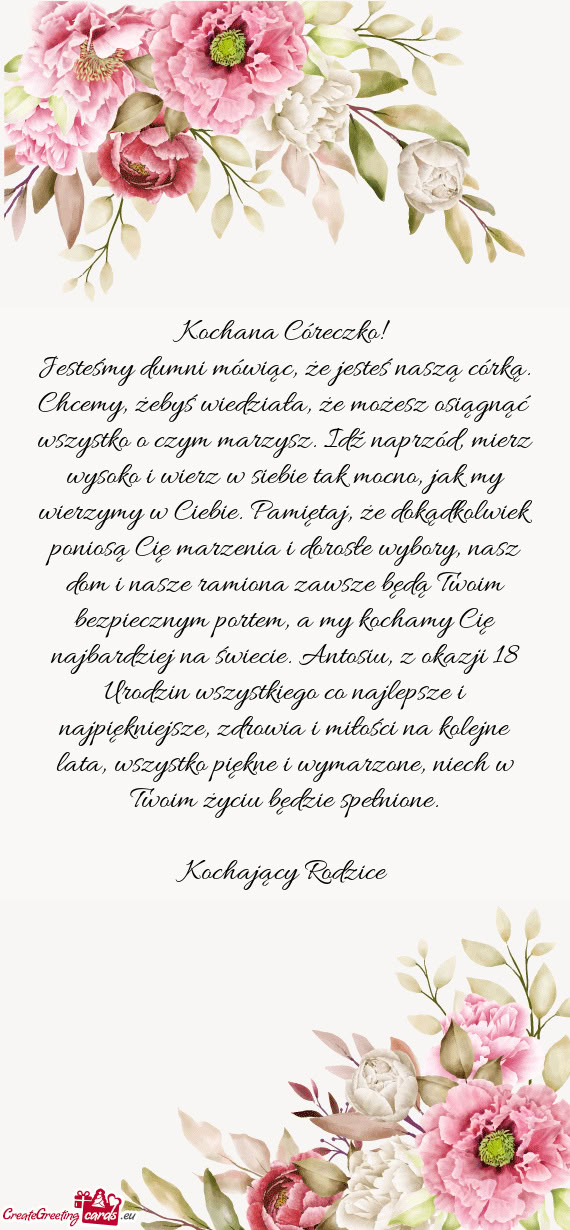 Kochana Córeczko!
Jesteśmy dumni mówiąc, że jesteś naszą córką.
Chcemy, żebyś wiedziała, że możesz osiągnąć
wszystko o czym marzysz. Idź naprzód, mierz
wysoko i wierz w siebie tak mocno, jak my
wierzymy w Ciebie. Pamiętaj, że dokądkolwiek
poniosą Cię marzenia i dorosłe wybory, nasz
dom i nasze ramiona zawsze będą Twoim
bezpiecznym portem, a my kochamy Cię
najbardziej na świecie. Antosiu, z okazji 18
Urodzin wszystkiego co najlepsze i
najpiękniejsze, zdrowia i miłości na kolejne
lata, wszystko piękne i wymarzone, niech w
Twoim życiu będzie spełnione.
Kochający Rodzice
CreateGreeting cards .eu